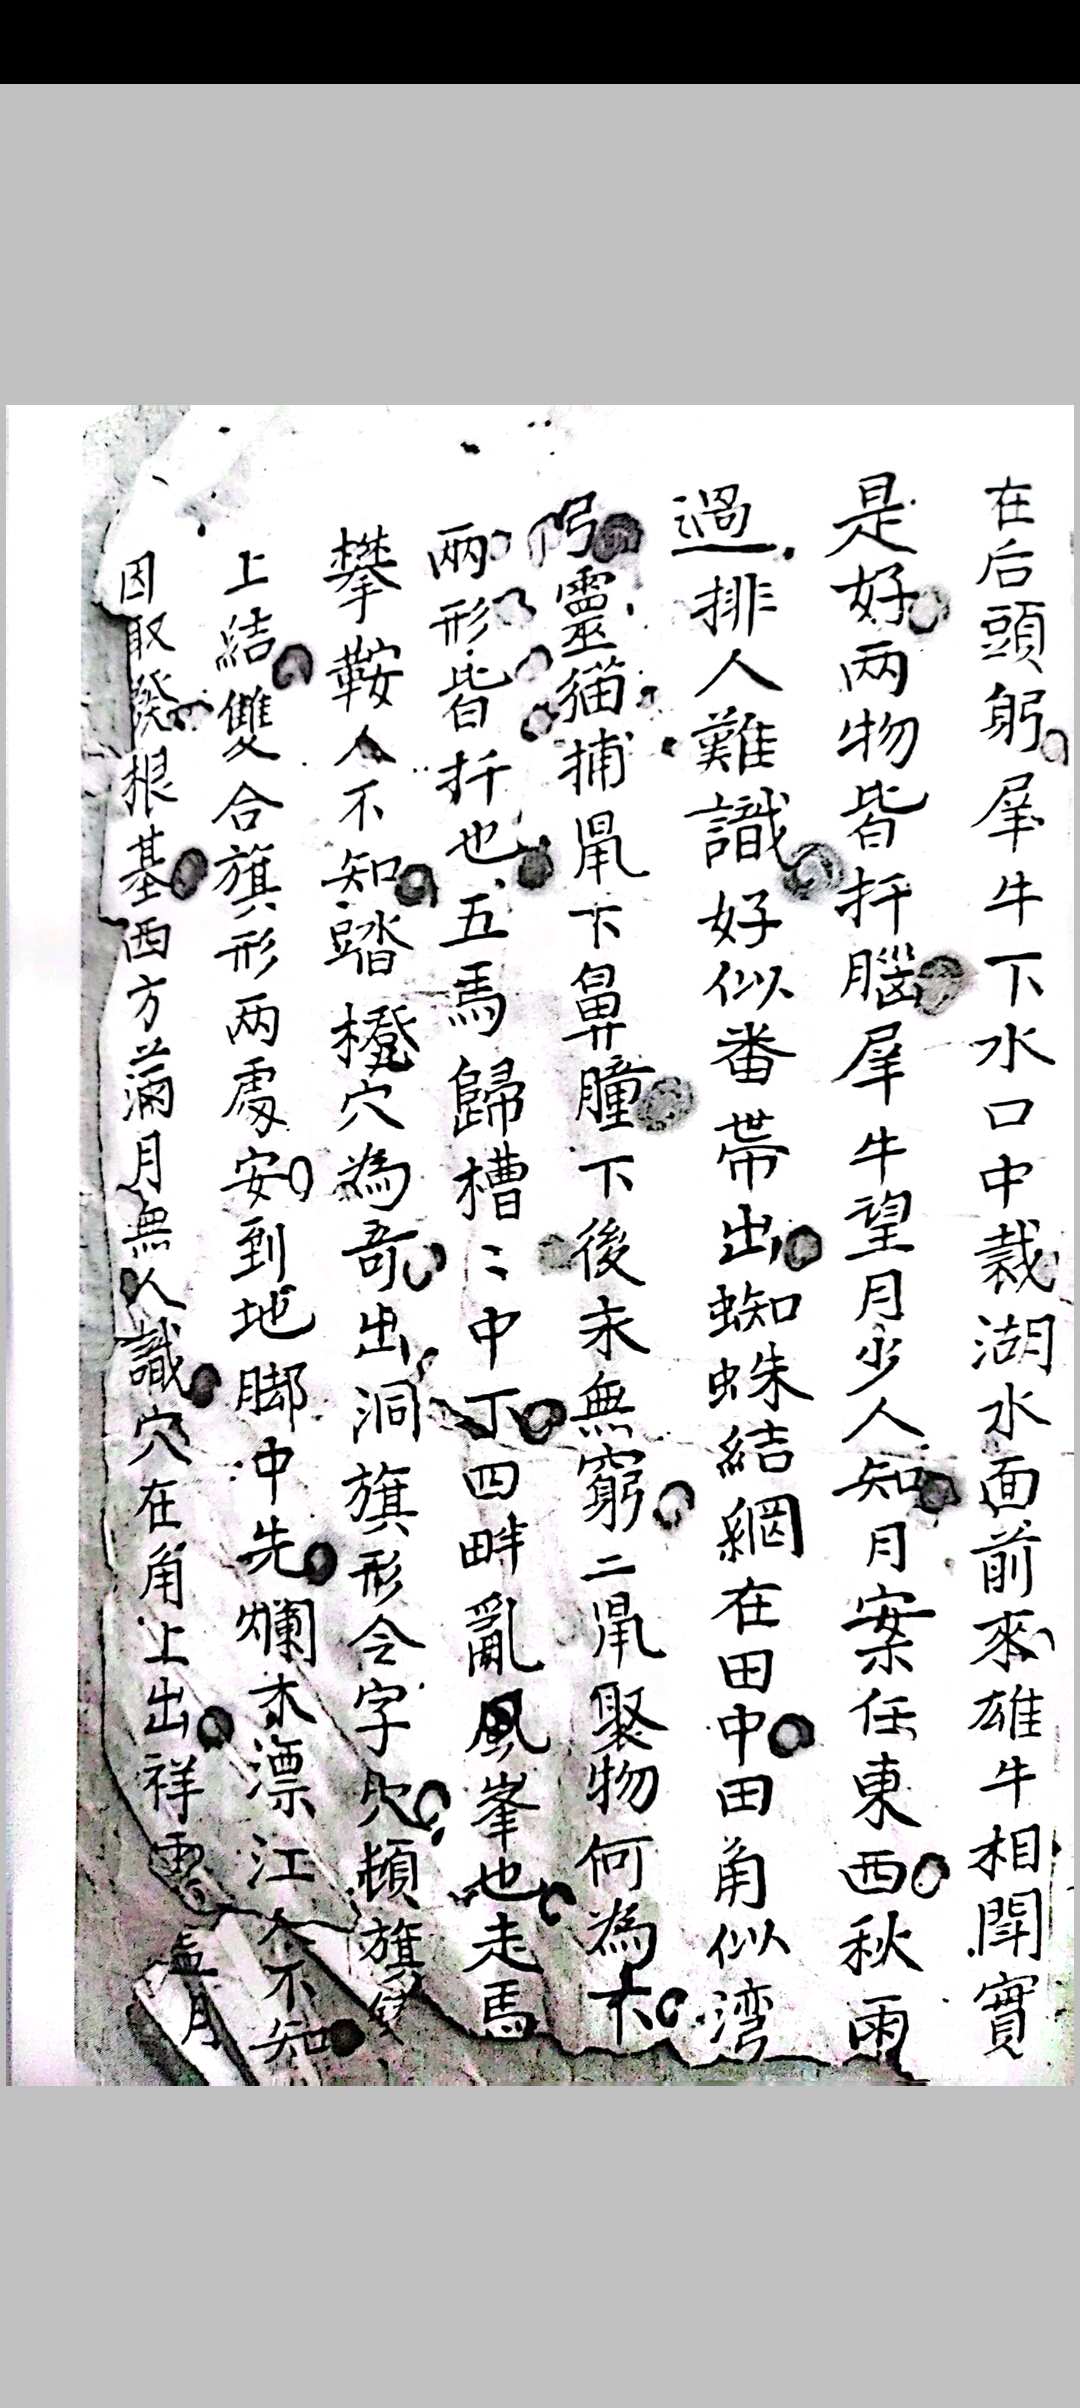 在后頭躬犀牛下水口中裁湖水面前來雄牛相鬪實
是好两物皆扦腦犀牛望月少人知月案任東西秋雨
過排人難識好似番帶出蜘蛛結網在田中田角似湾
弓靈猫捕鼠下鼻瞳下後未無窮二鼠聚物何為木
兩形皆扦也五馬歸槽〻中丁四畔亂風峯也走馬
攀鞍人不知踏橙穴為奇出洞旗形令字穴頓旗
上結雙合旗形两處安到地脚中先爛木漂江人不知
因取發根基西方滿月無人識穴在角上出祥雲 月